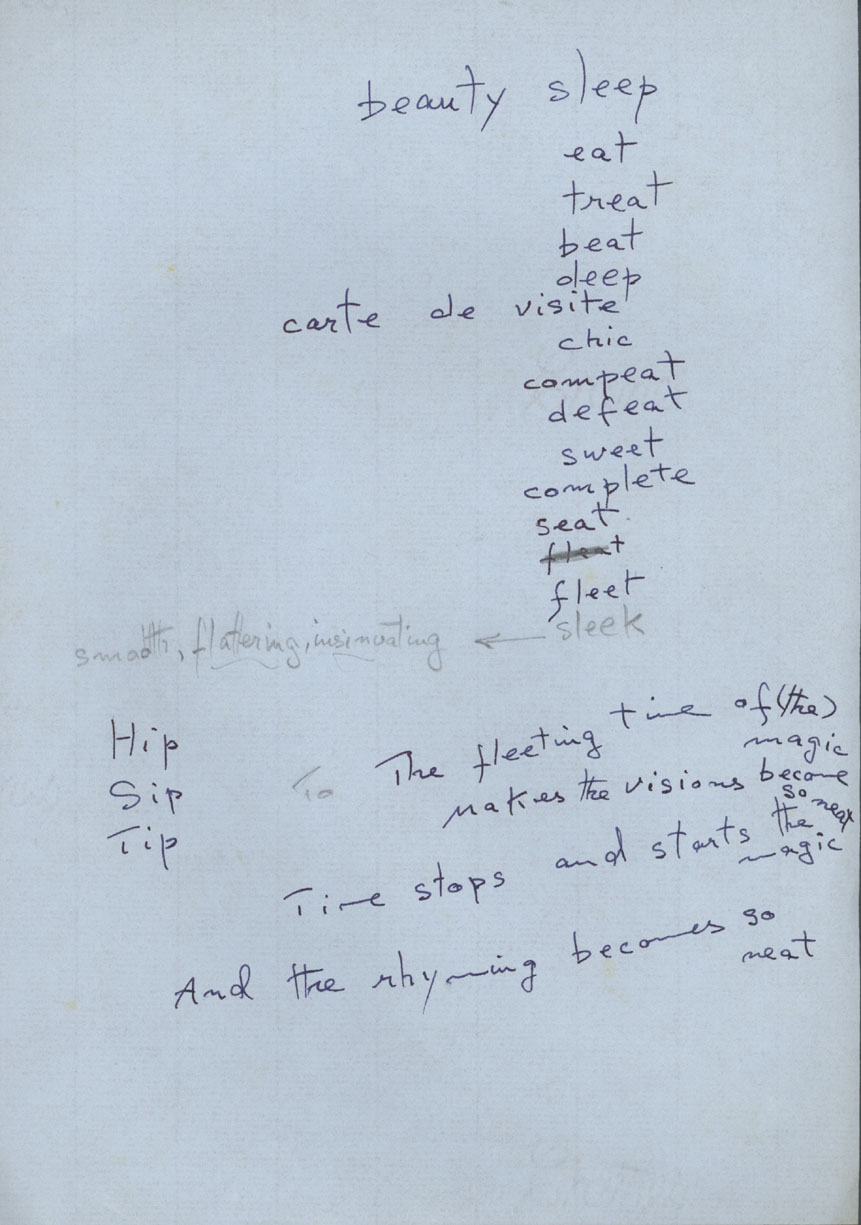 beauty sleep
eat
treat
beat
deep
carte de visite
chic
compeat
defeat
sweet
complete
seat
fleat
fleet
smooth, flattering, insinuating ← sleek
Hip
Sip
Tip
To The fleeting time of (the)
magic
makes the visions become
so near
Time stops and starts the
magic
And the rhyming becomes so
neat